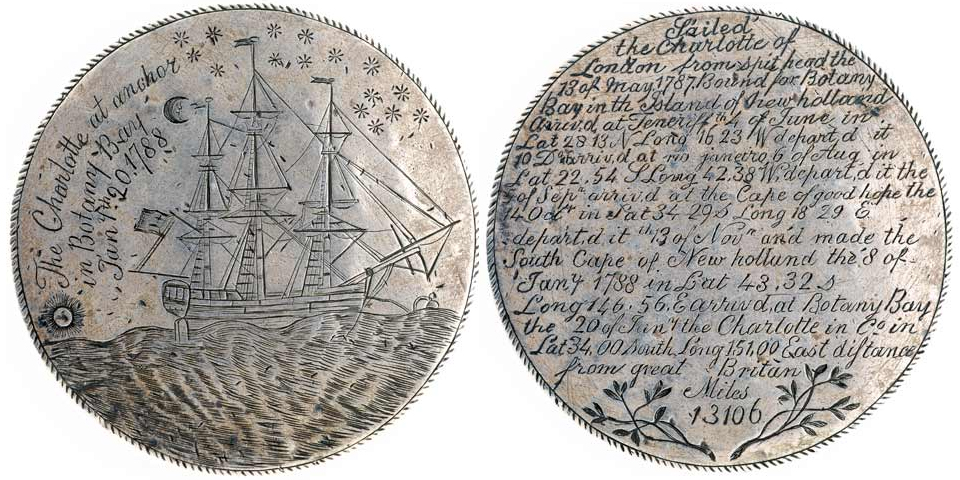 The Charlotte at anchor
in Botany Bay
Jany th 20.1788
Sailed
the Charlotte of
London from spit head the
13 of May 1787. Bound for Botany
Bay in th Island of New holland
Arriv,d at Teneriff th 4 of June in
Lat 28 13 N Long 16 23 W depart,d it
10 Do arriv,d at rio janeiro, 6 of Aug in
Lat 22.54 S Long 42.38 W. depart,d it the
of Sepr arriv,d at the Cape of good hope the
14 Octr in Lat 34 29 S Long 18 29 E
depart,d it th 13 of Novr and made the
South Cape of New holland the 8 of
Jany 1788 in Lat 43.32 S
Long 146.56.E arriv,d at Botany Bay
the 20 of Jany the Charlotte in Co in
Lat 34.00 South Long 151.00 East distance
from great Britan
Miles
13106